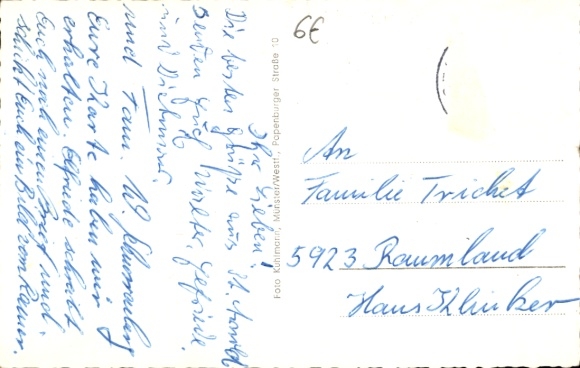 Ihr Lieben!
Die besten Grüße aus St. Arnold
senden Euch Walter, Elfriede
und Dietmar.
und Fam. W. Schurenberg
Eure Karte haben wir
erhalten. Elfriede schreibt
Euch noch einen Brief und
schickt Euch ein Bild vom Rainer.
Foto Kuhlmann, Münster/Westf., Papenburger Straße 10
6€
An
Familie Trichet
5923 Raumland
Haus Klinker